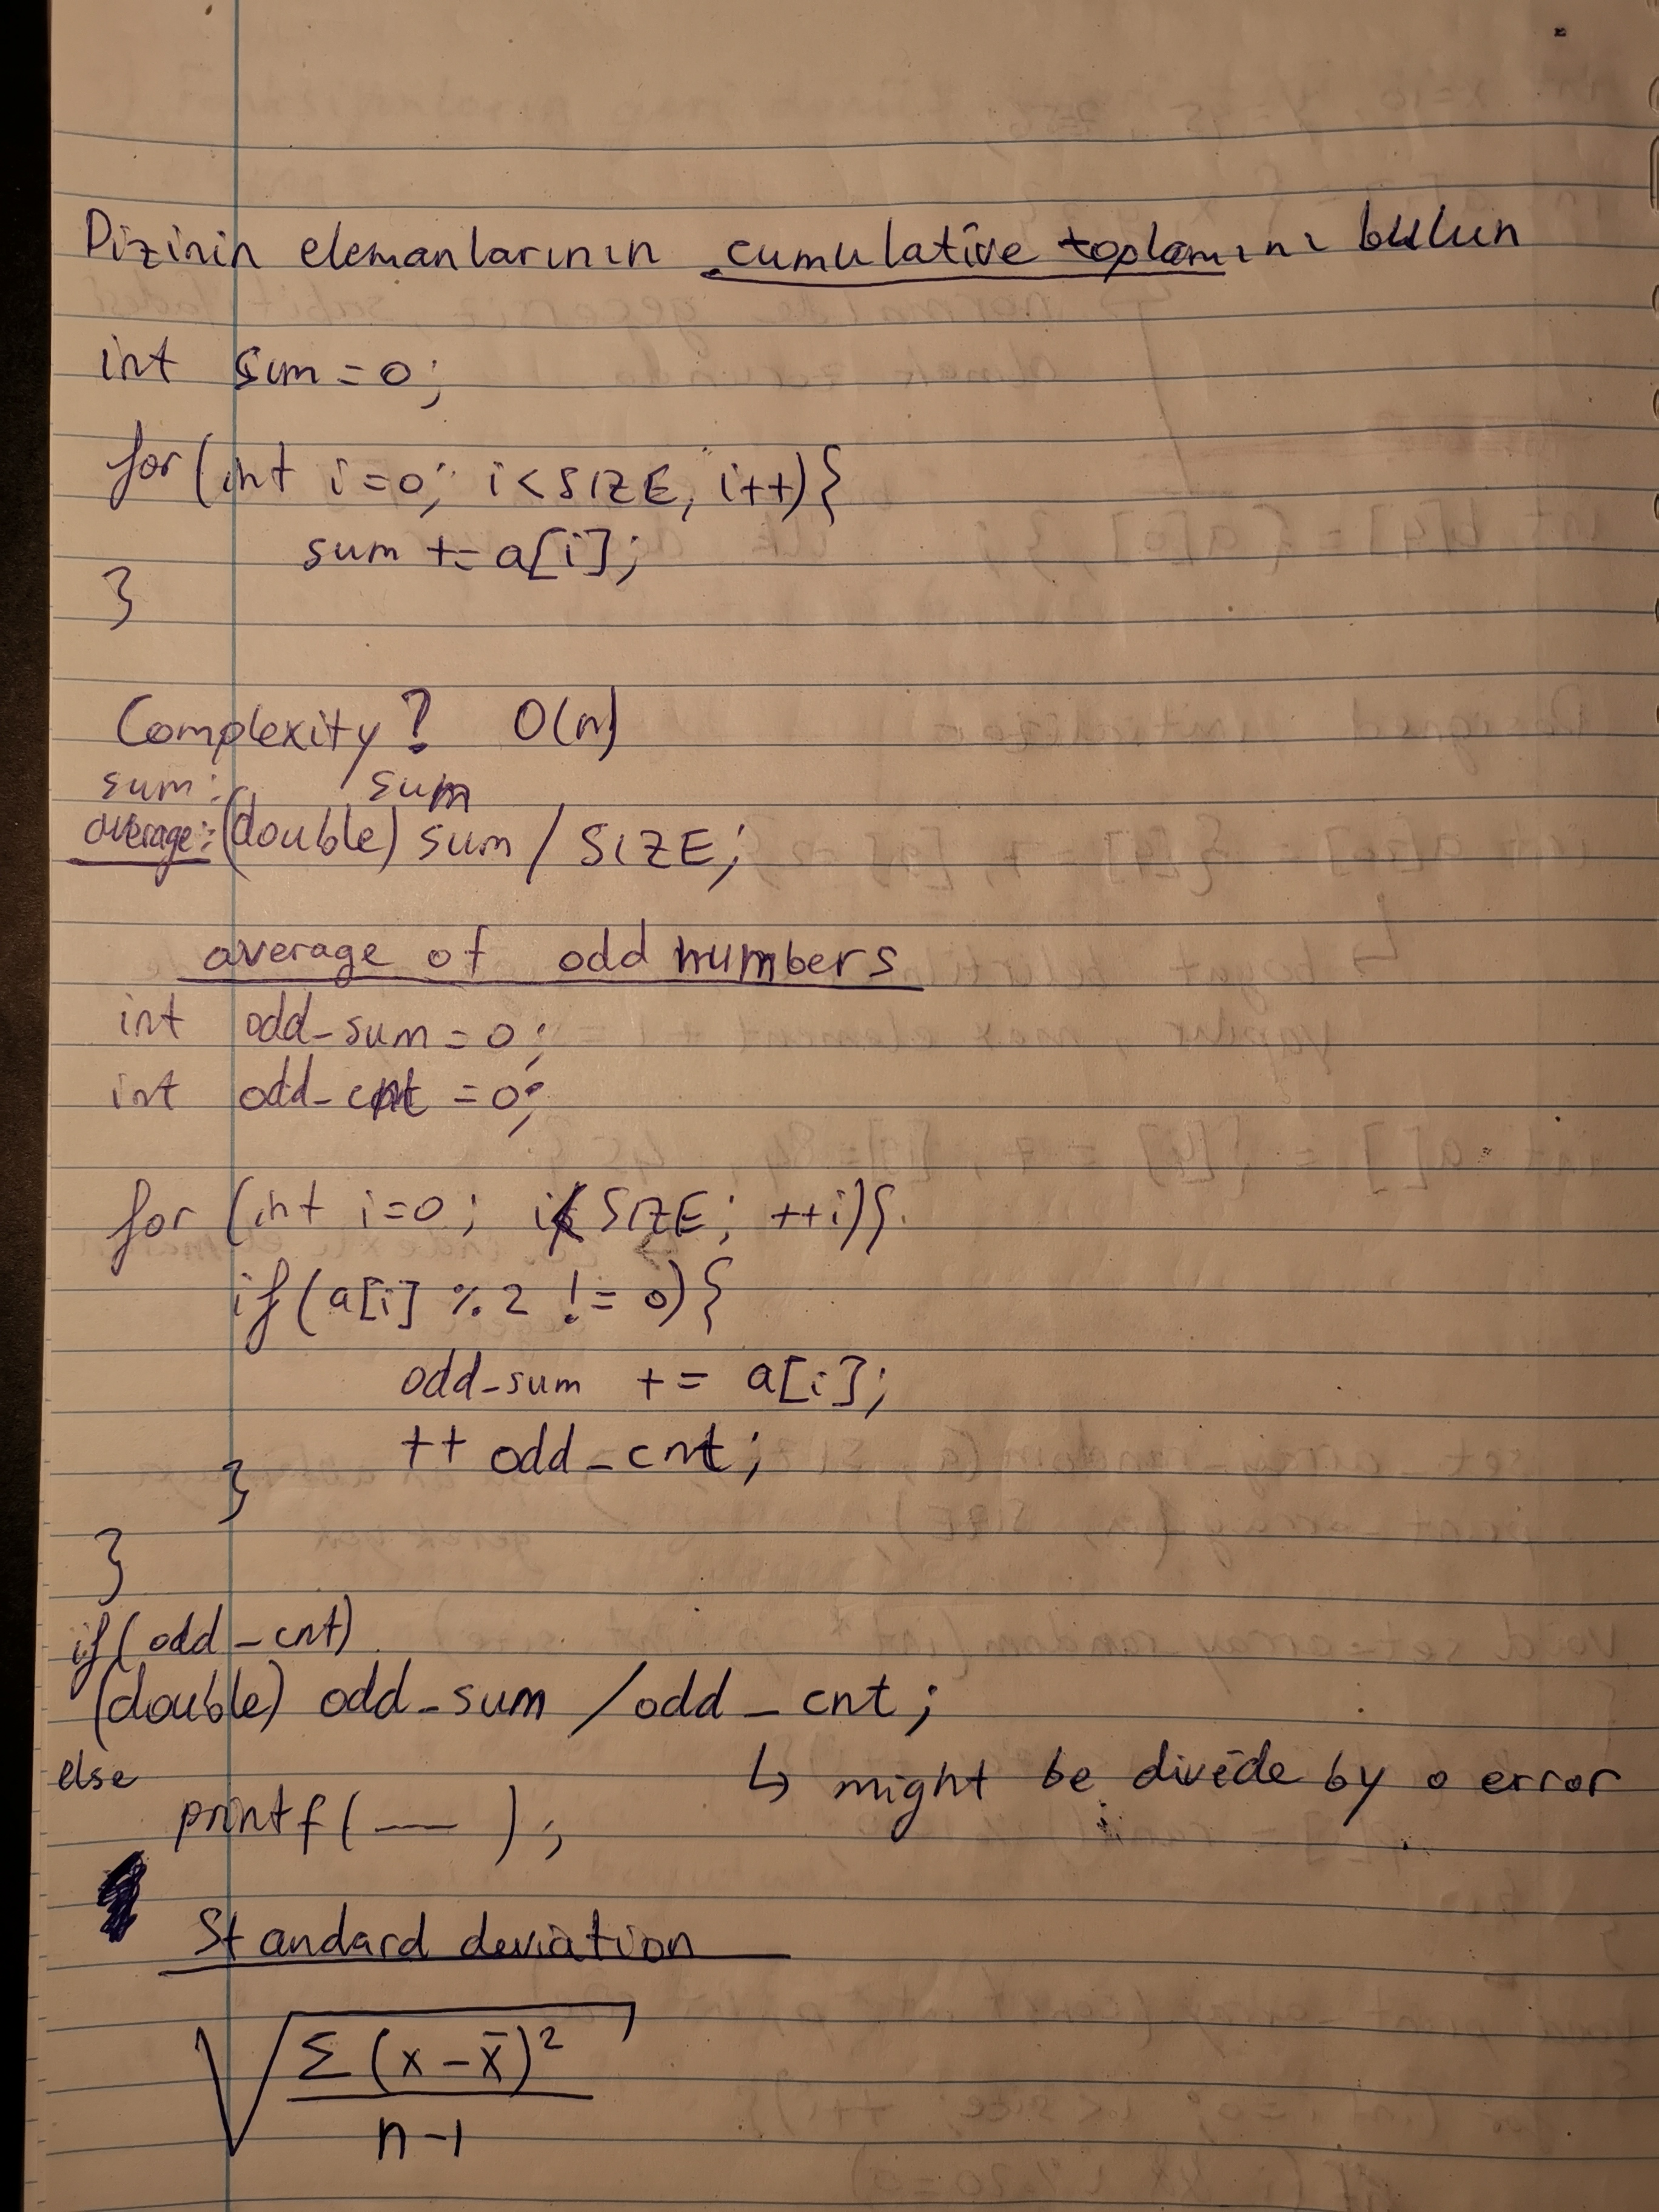 Dizinin elemanlarının cumulative toplamını bulun
int sum = 0;
for (int i=0; i<SIZE, i++){
sum += a[i];
}
Complexity? O(n)
sum: sum
average: (double) sum / SIZE;
average of odd numbers
int odd_sum = 0;
int odd_cnt = 0;
for (int i=0; i< SIZE; ++i){
if (a[i] % 2 != 0){
odd_sum += a[i];
++ odd_cnt;
}
}
if (odd_cnt)
(double) odd_sum / odd_cnt;
else ↳ might be divide by 0 error
printf( — );
Standard deviation
√ Σ (x - x̄)²
n-1